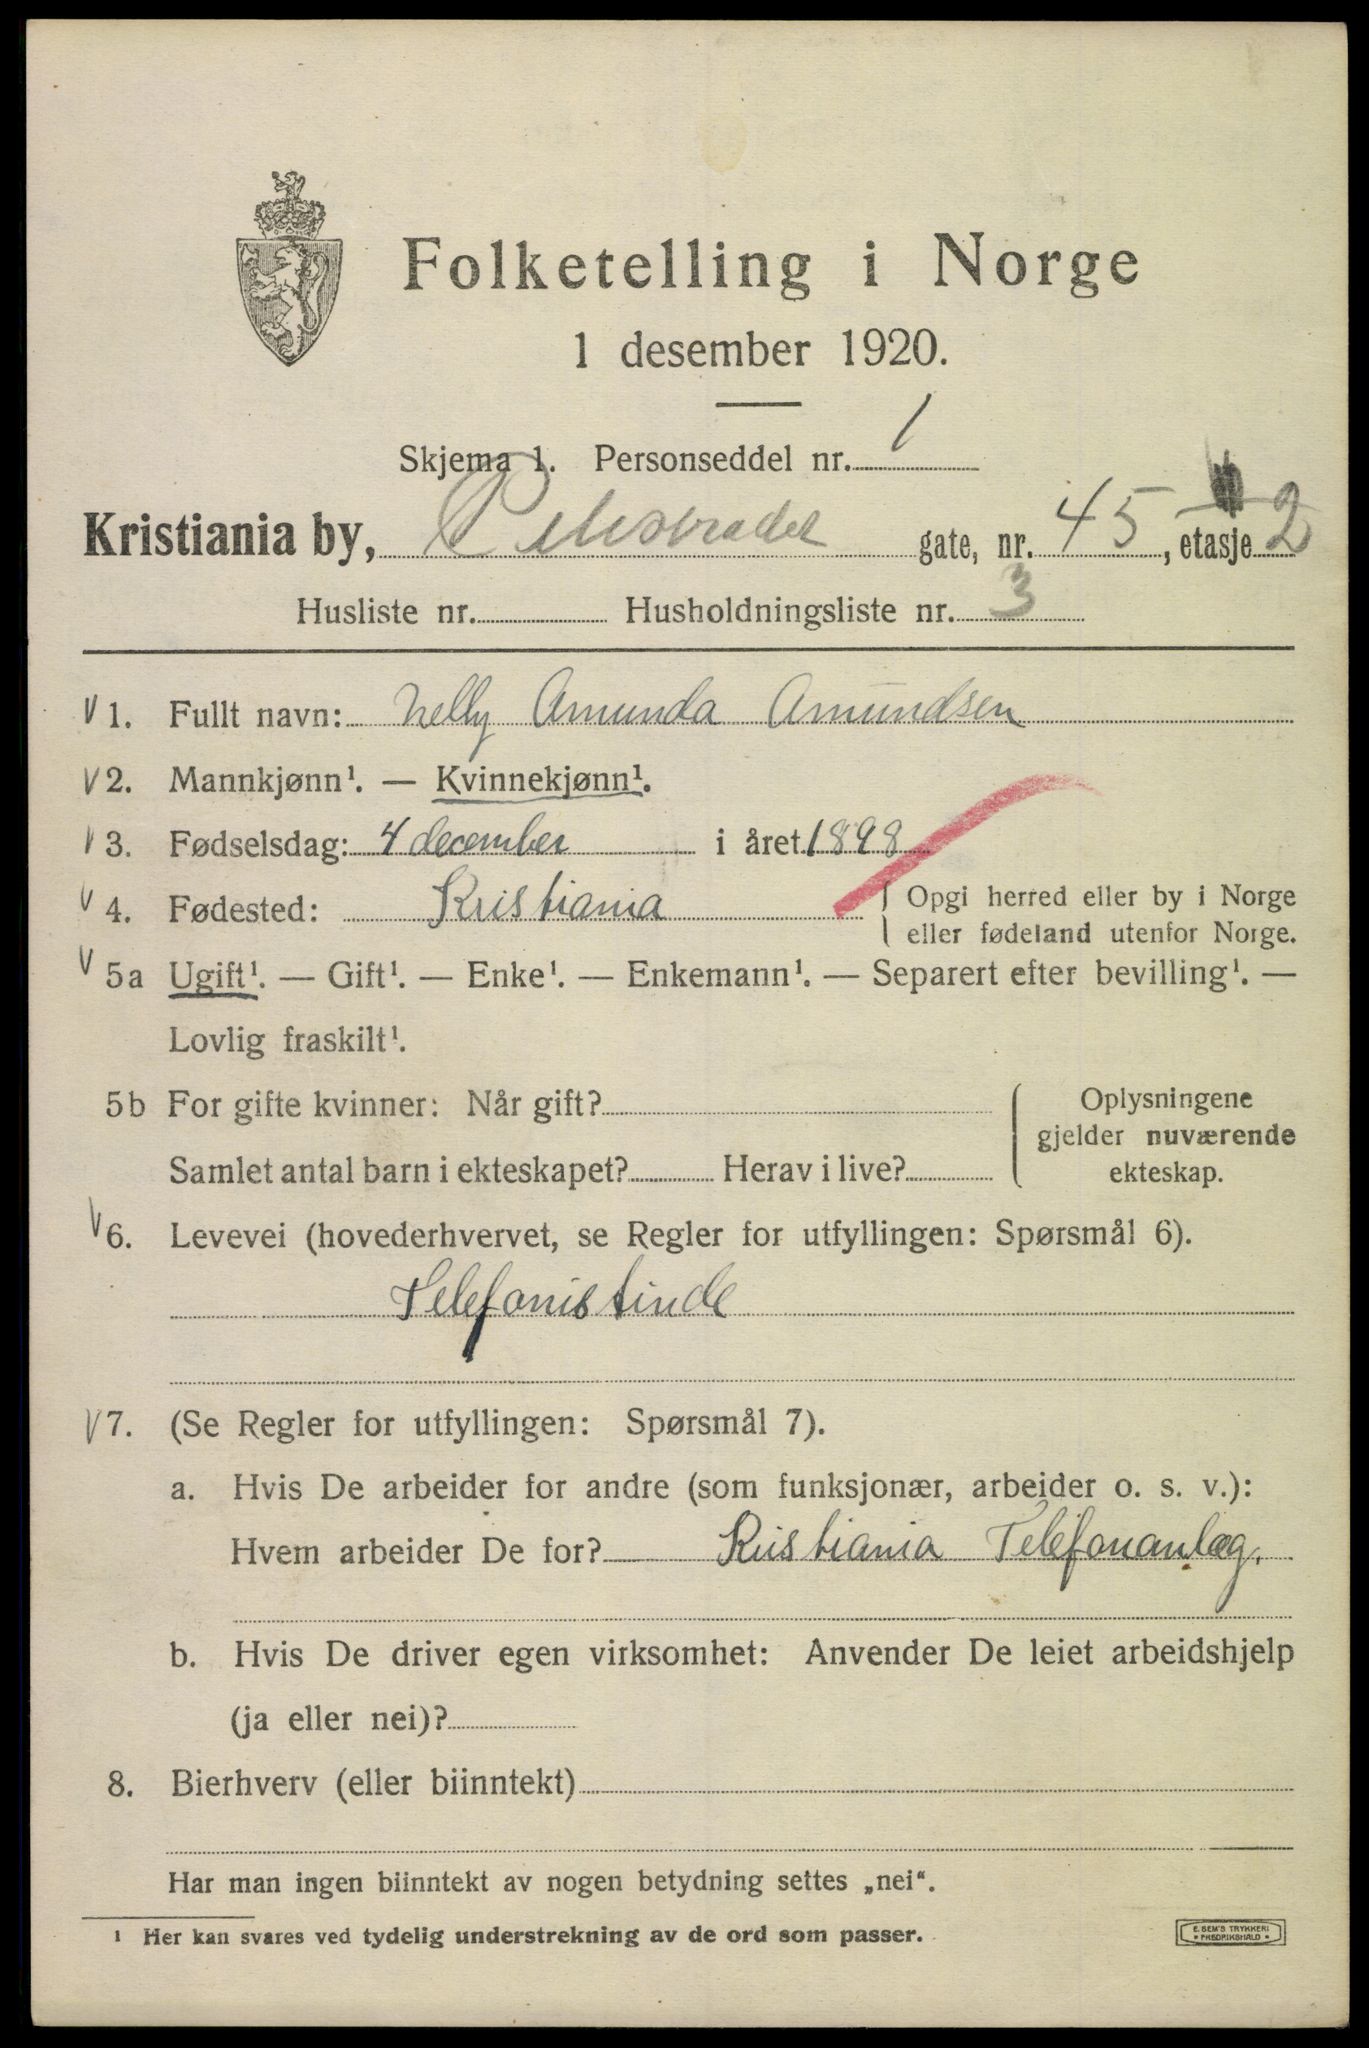 Folketelling i Norge
1 desember 1920.
Skjema 1. Personseddel nr. 1
Kristiania by, Pilestrædet gate, nr. 45, etasje 2
Husliste nr. Husholdningsliste nr. 3
V 1. Fullt navn: Nelly Amunda Amundsen
V 2. Mannkjønn¹. — Kvinnekjønn¹.
V 3. Fødselsdag: 4 december i året 1898
V 4. Fødested: Kristiania { Opgi herred eller by i Norge
eller fødeland utenfor Norge.
V 5a Ugift¹. — Gift¹. — Enke¹. — Enkemann¹. — Separert efter bevilling¹. —
Lovlig fraskilt¹.
5b For gifte kvinner: Når gift? Oplysningene
gjelder nuværende
Samlet antal barn i ekteskapet? Herav i live? ekteskap.
V 6. Levevei (hovederhvervet, se Regler for utfyllingen: Spørsmål 6).
Telefonistinde
V 7. (Se Regler for utfyllingen: Spørsmål 7).
a. Hvis De arbeider for andre (som funksjonær, arbeider o. s. v.):
Hvem arbeider De for? Kristiania Telefonanlæg.
b. Hvis De driver egen virksomhet: Anvender De leiet arbeidshjelp
(ja eller nei)?
8. Bierhverv (eller biinntekt)
Har man ingen biinntekt av nogen betydning settes „nei“.
¹ Her kan svares ved tydelig understrekning av de ord som passer.
E. SEM'S TRYKKERI
FREDRIKSHALD